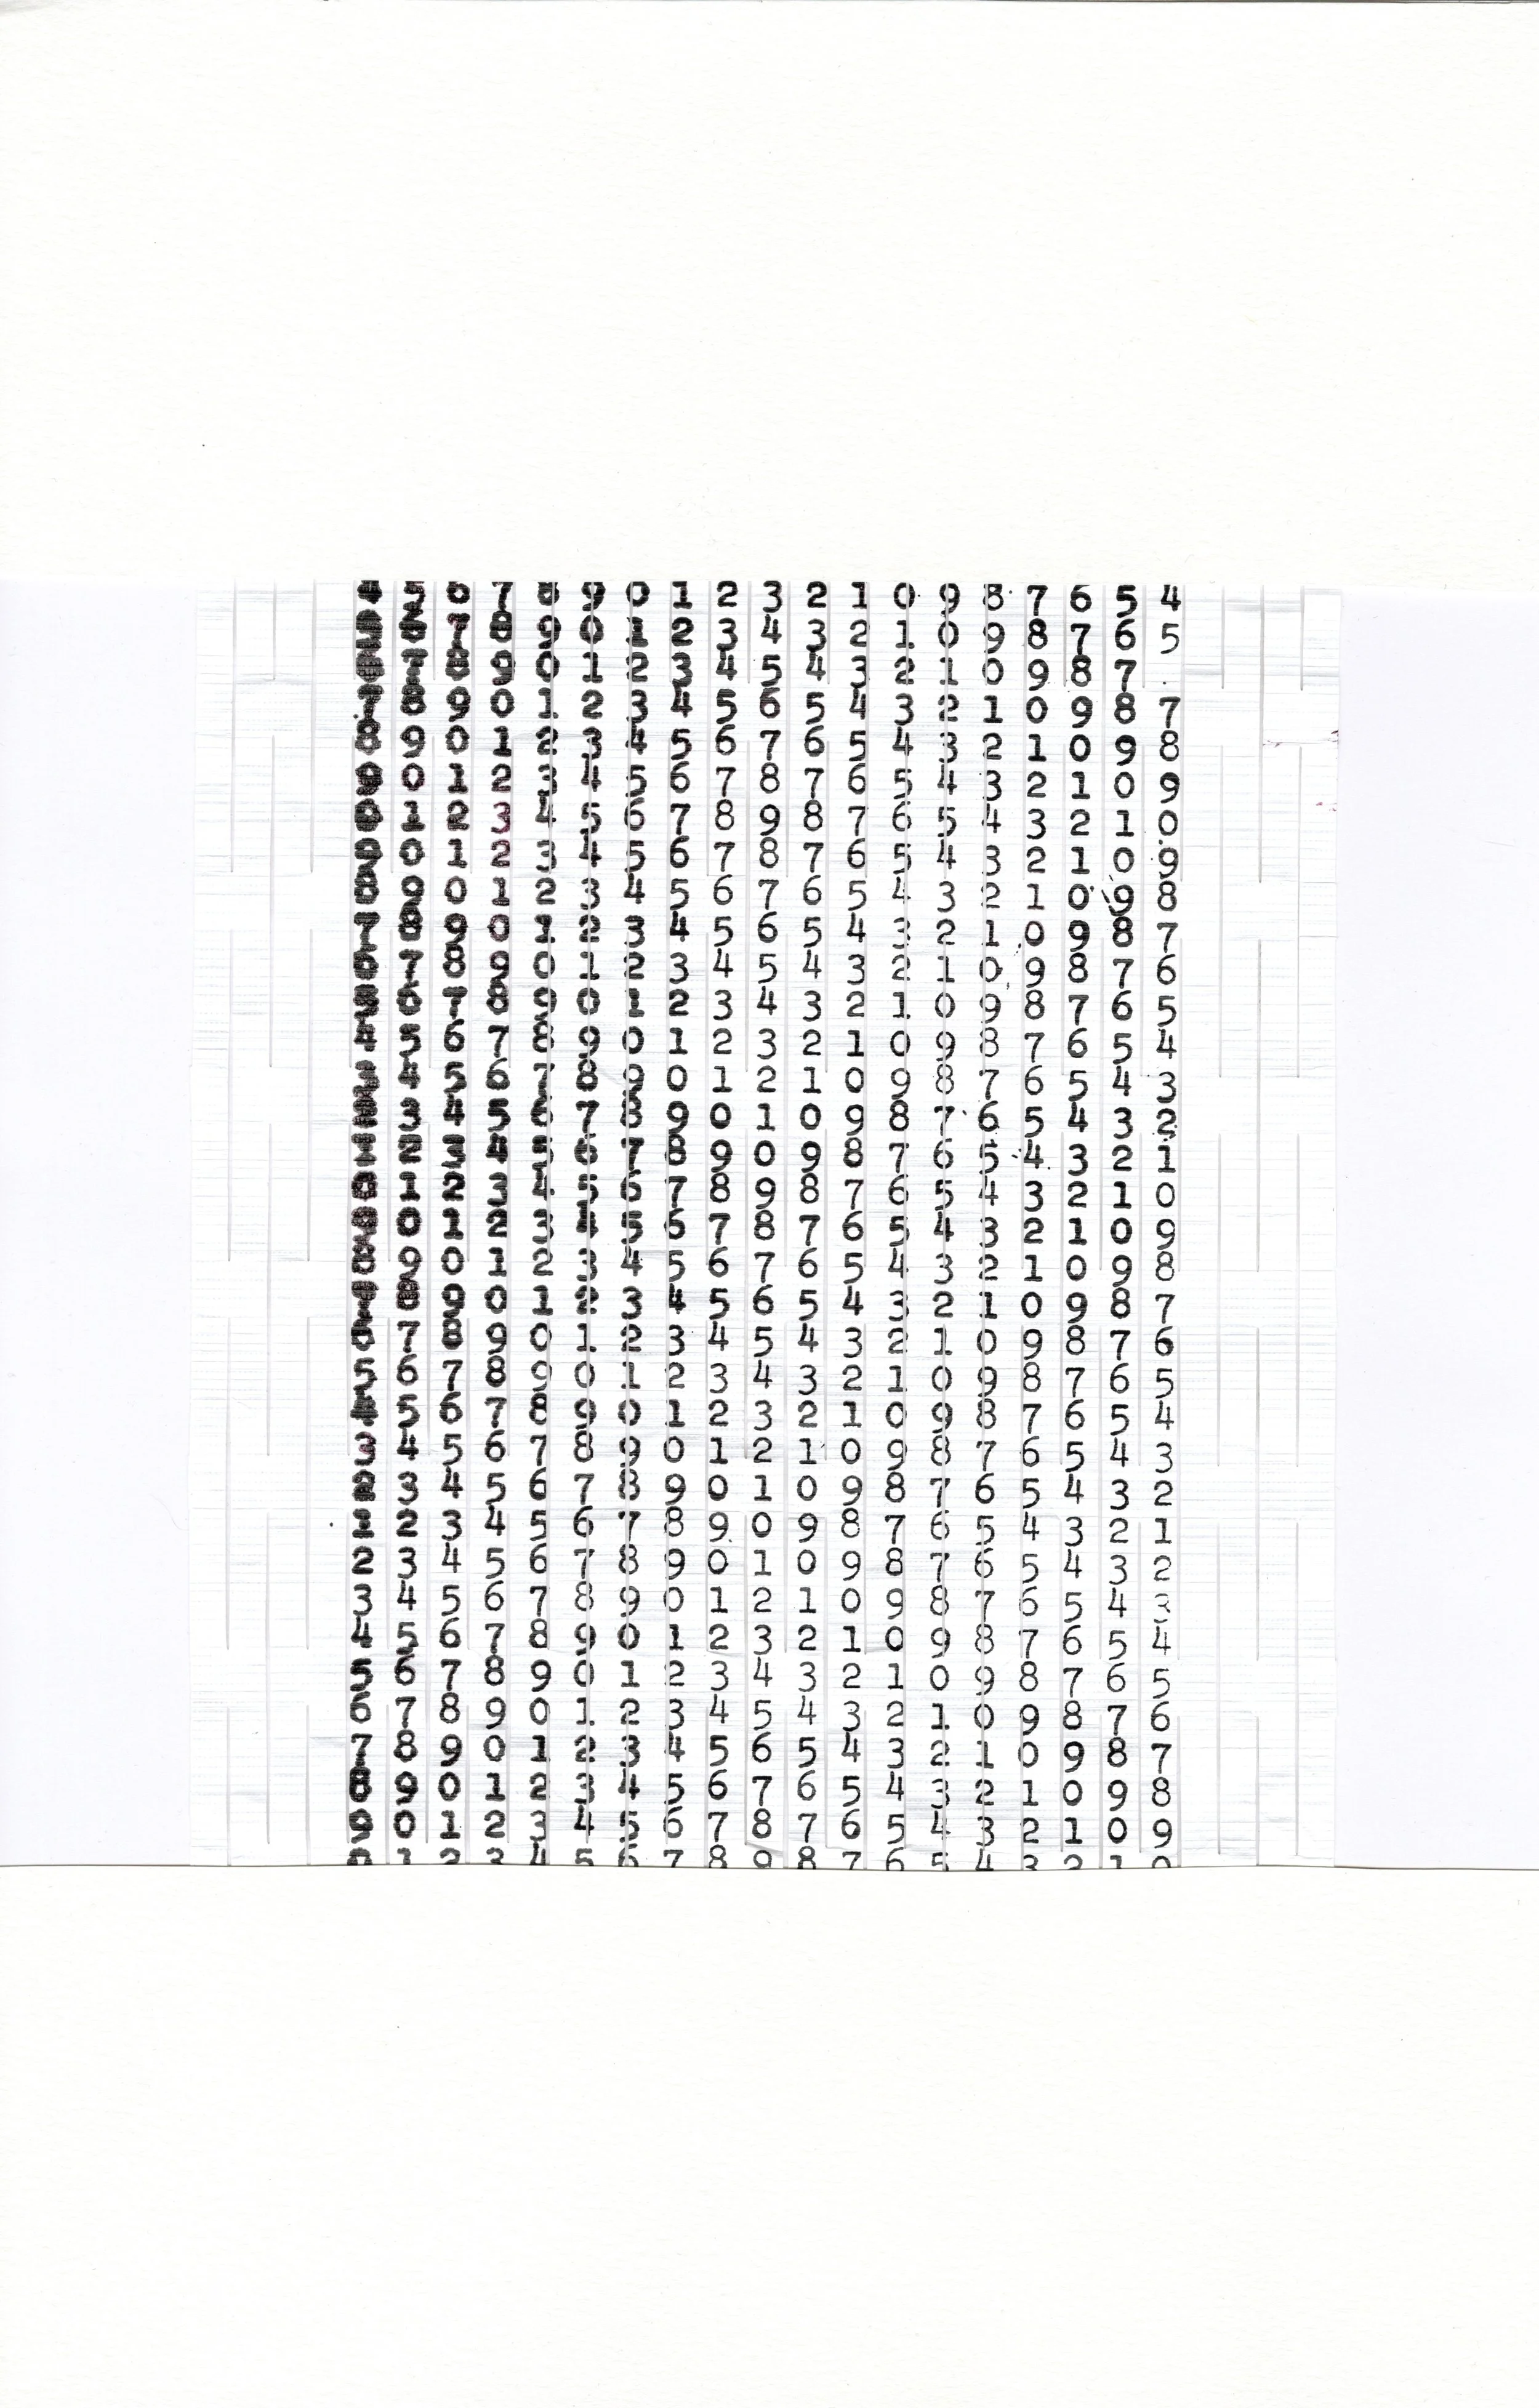 4 5 6 7 8 9 0 1 2 3 2 1 0 9 8 7 6 5 4
5 6 7 8 9 0 1 2 3 4 3 2 1 0 9 8 7 6 5
7 8 9 0 1 2 3 4 5 4 3 2 1 0 9 8 7 .
7 8 9 0 1 2 3 4 5 6 5 4 3 2 1 0 9 8 7
8 9 0 1 2 3 4 5 6 7 6 5 4 3 2 1 0 9 8
9 0 1 2 3 4 5 6 7 8 7 6 5 4 3 2 1 0 9
0 1 2 3 4 5 6 7 8 9 8 7 6 5 4 3 2 1 0
9 0 1 2 3 4 5 6 7 8 7 6 5 4 3 2 1 0 9
8 9 0 1 2 3 4 5 6 7 6 5 4 3 2 1 0 9 8
7 8 9 0 1 2 3 4 5 6 5 4 3 2 1 0 9 8 7
6 7 8 9 0 1 2 3 4 5 4 3 2 1 0 9 8 7 6
5 6 7 8 9 0 1 2 3 4 3 2 1 0 9 8 7 6 5
4 5 6 7 8 9 0 1 2 3 2 1 0 9 8 7 6 5 4
3 4 5 6 7 8 9 0 1 2 1 0 9 8 7 6 5 4 3
2 3 4 5 6 7 8 9 0 1 0 9 8 7 6 5 4 3 2
1 2 3 4 5 6 7 8 9 0 9 8 7 6 5 4 3 2 1
0 1 2 3 4 5 6 7 8 9 8 7 6 5 4 3 2 1 0
9 0 1 2 3 4 5 6 7 8 7 6 5 4 3 2 1 0 9
8 9 0 1 2 3 4 5 6 7 6 5 4 3 2 1 0 9 8
8 9 0 1 2 3 4 5 6 5 4 3 2 1 0 9 8 7
6 7 8 9 0 1 2 3 4 5 4 3 2 1 0 9 8 7 6
5 6 7 8 9 0 1 2 3 4 3 2 1 0 9 8 7 6 5
4 5 6 7 8 9 0 1 2 3 2 1 0 9 8 7 6 5 4
3 4 5 6 7 8 9 0 1 2 1 0 9 8 7 6 5 4 3
2 3 4 5 6 7 8 9 0 1 0 9 8 7 6 5 4 3 2
1 2 3 4 5 6 7 8 9 0 9 8 7 6 5 4 3 2 1
2 3 4 5 6 7 8 9 0 1 0 9 8 7 6 5 4 3 2
3 4 5 6 7 8 9 0 1 2 1 0 9 8 7 6 5 4 3
4 5 6 7 8 9 0 1 2 3 2 1 0 9 8 7 6 5 4
5 6 7 8 9 0 1 2 3 4 3 2 1 0 9 8 7 6 5
6 7 8 9 0 1 2 3 4 5 4 3 2 1 0 9 8 7 6
7 8 9 0 1 2 3 4 5 6 5 4 3 2 1 0 9 8 7
8 9 0 1 2 3 4 5 6 7 6 5 4 3 2 1 0 9 8
9 0 1 2 3 4 5 6 7 8 7 6 5 4 3 2 1 0 9
0 1 2 3 4 5 6 7 8 9 8 7 6 5 4 3 2 1 0